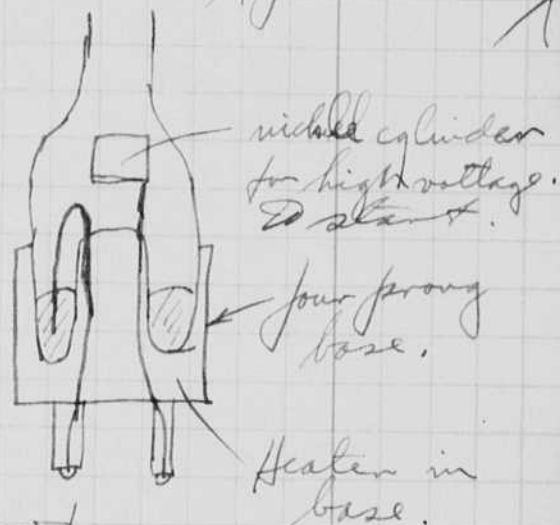 nickel cylinder
for high voltage.
to start.
four prong
base.
Heater in
base.